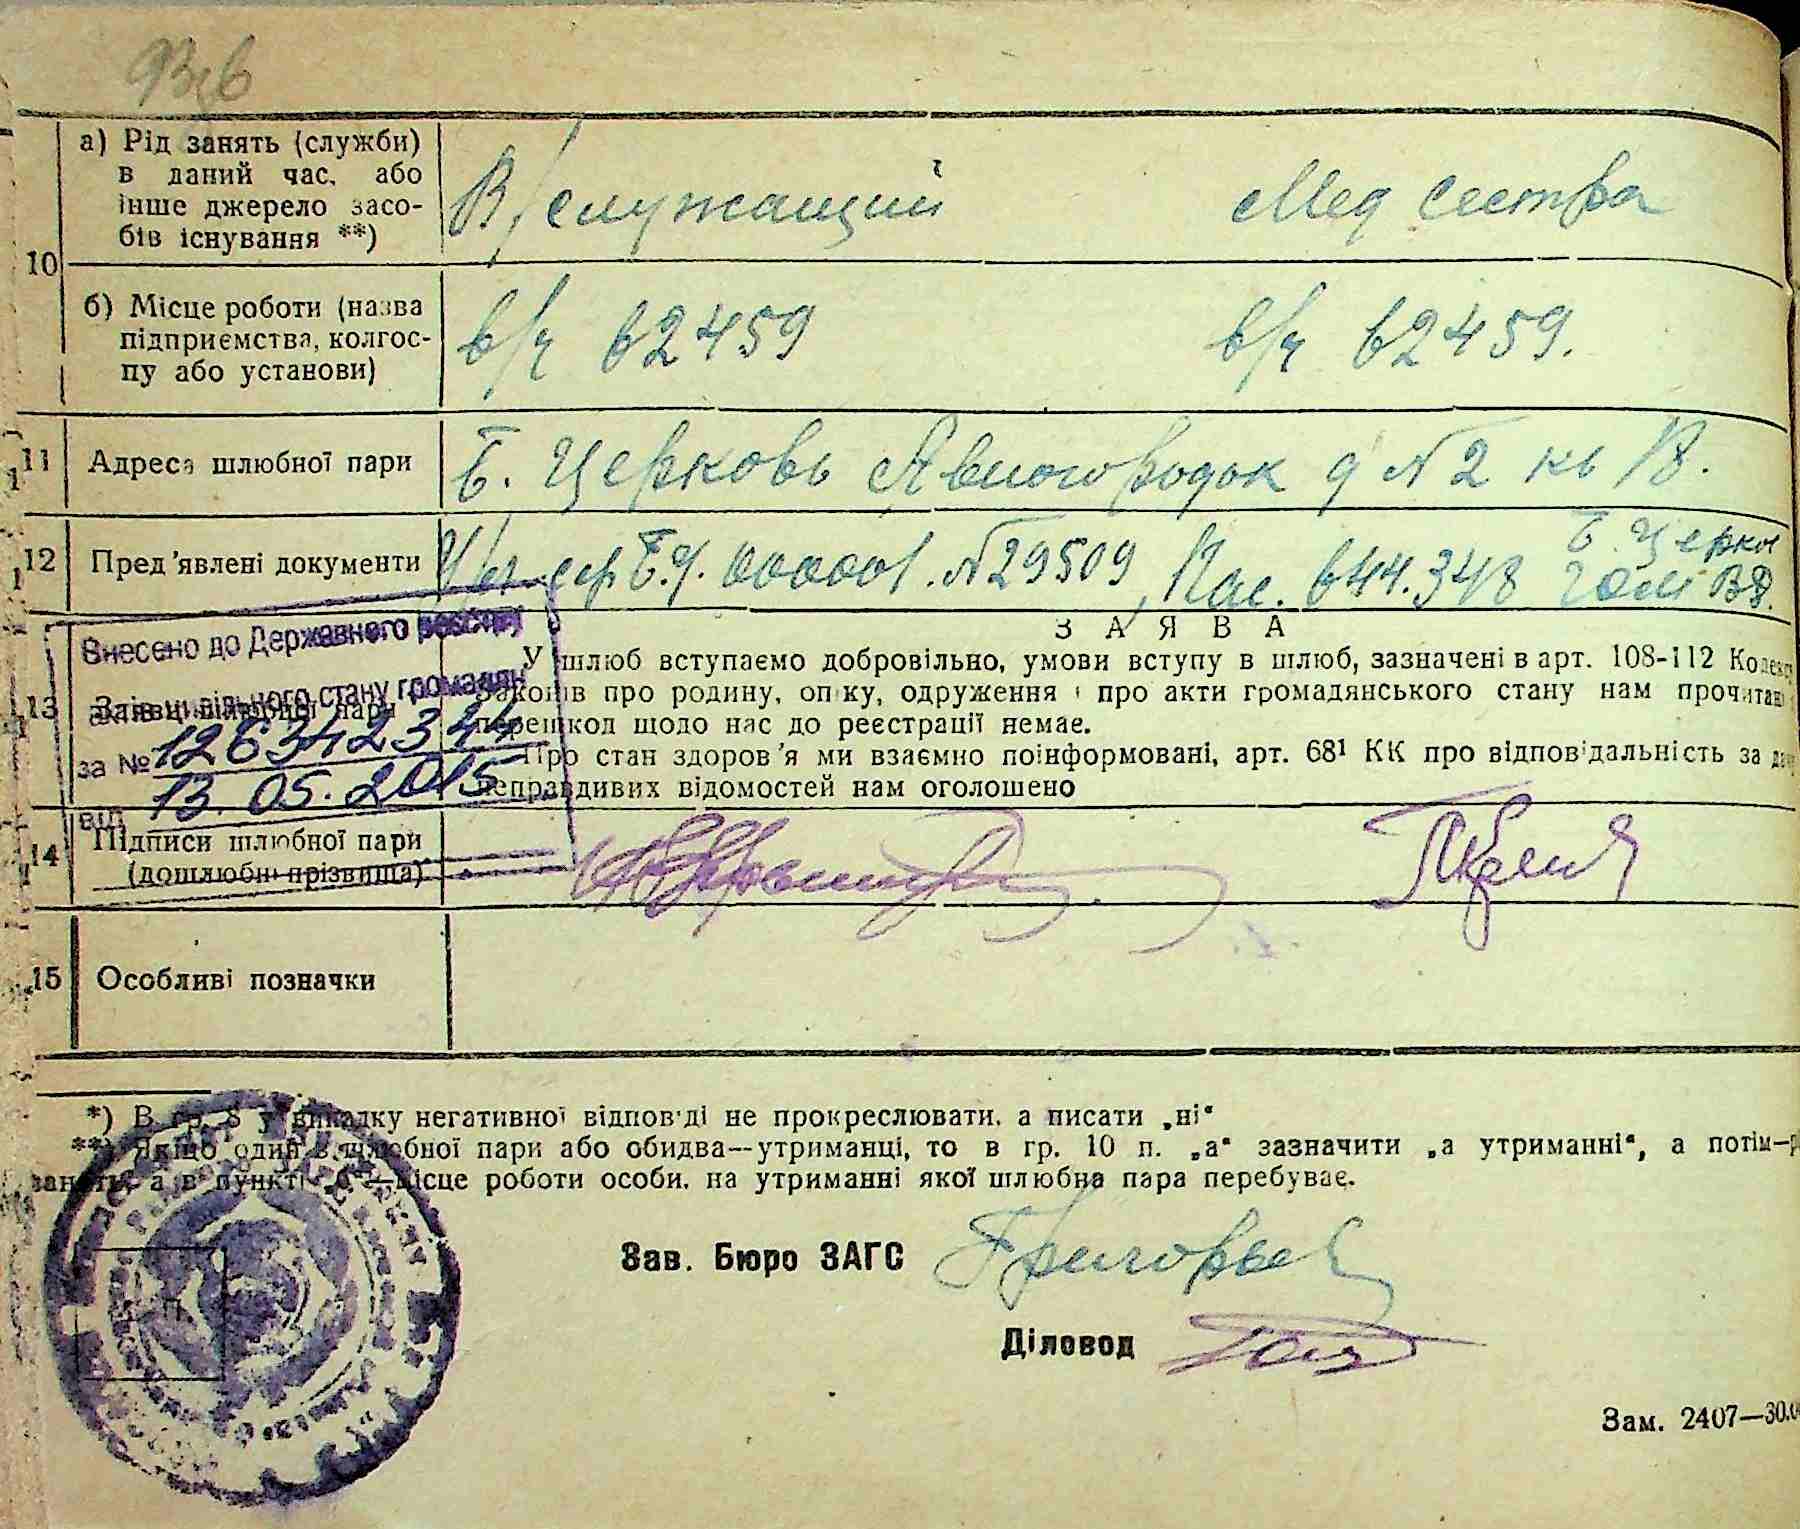 10
а) Рід занять (служби)
в даний час, або
інше джерело засо-
бів існування **)
В/служащий
Мед сестра
б) Місце роботи (назва
підприємства, колгос-
пу або установи)
в/ч 62459
в/ч 62459.
11
Адреса шлюбної пари
Б. Церковь Авиогородок д №2 кв 18.
12
Пред'явлені документи
№29509
Пас. 644.348
Б. Церков
ВД.
Внесено до Державного реєстру
актів цивільного стану громадян
за № 1263423
від 13.05.2015
13
шлюбної пари
З А Я В А
У шлюб вступаємо добровільно, умови вступу в шлюб, зазначені в арт. 108-112 Кодексу
законів про родину, опіку, одруження і про акти громадянського стану нам прочитані
перешкод щодо нас до реєстрації немає.
Про стан здоров'я ми взаємно поінформовані, арт. 68¹ КК про відповідальність за
неправдивих відомостей нам оголошено
14
Підписи шлюбної пари
(дошлюбні прізвища)
15
Особливі позначки
*) В гр. 8 у випадку негативної відповіді не прокреслювати, а писати „ні“
**) Якщо один з шлюбної пари або обидва—утриманці, то в гр. 10 п. „а“ зазначити „а утриманні“, а потім—
занять, а в пункті —місце роботи особи, на утриманні якої шлюбна пара перебуває.
Зав. Бюро ЗАГС
М. П.
Діловод
Зам. 2407—30.